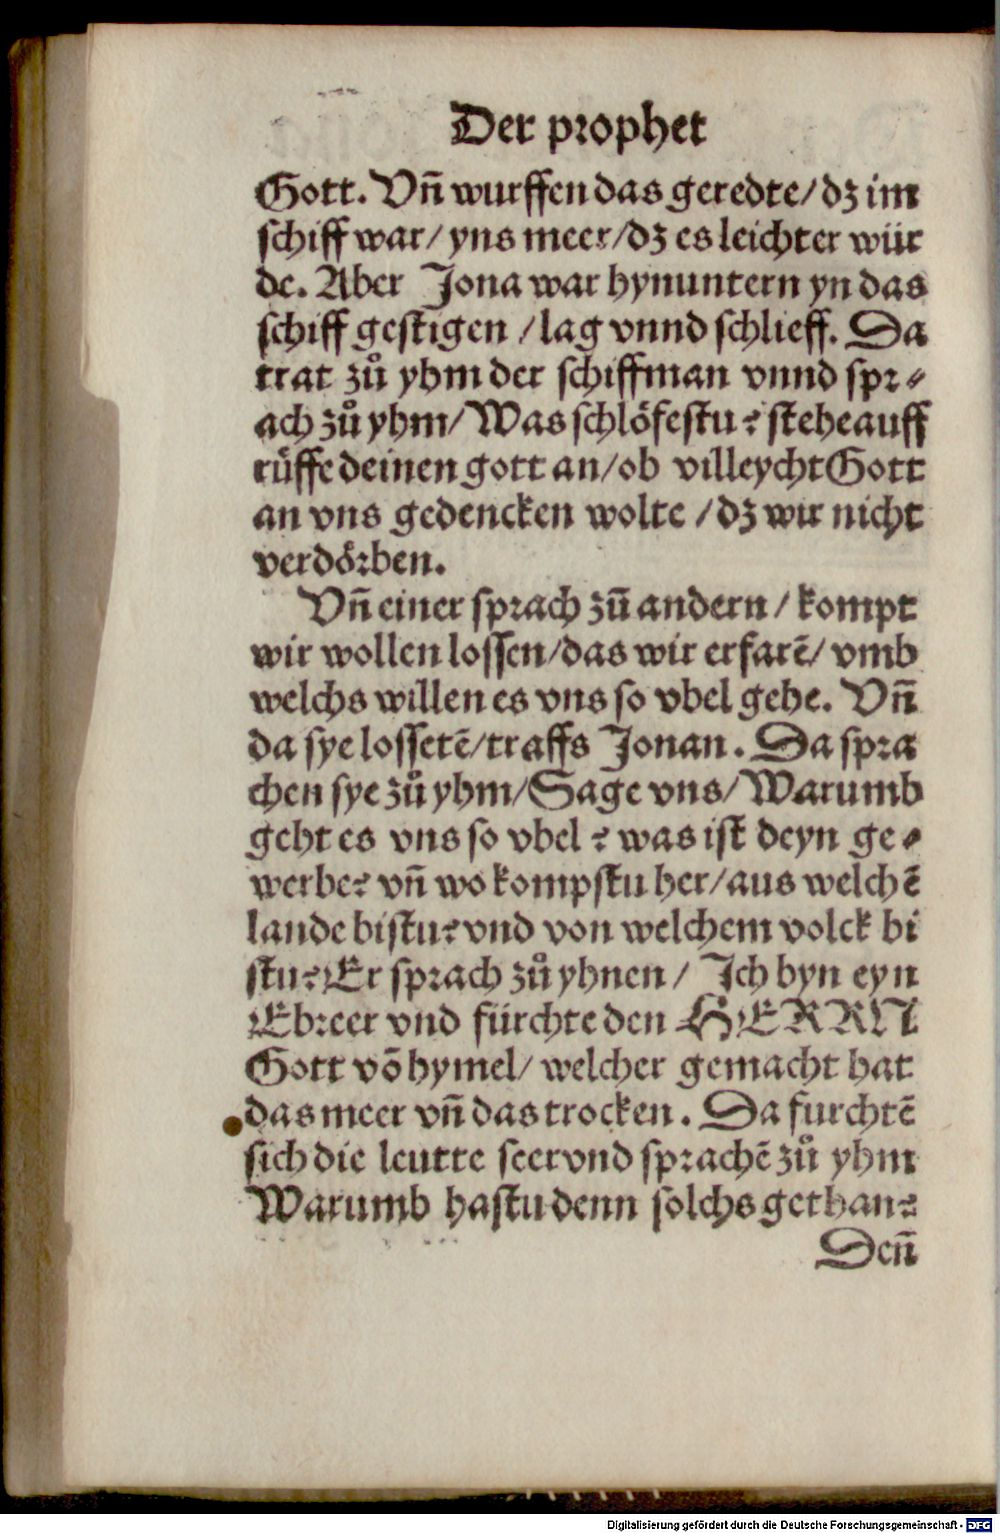 Der prophet
Gott. Vñ wurffen das geredte/ dz im
schiff war/ yns meer/dz es leichter wür
de. Aber Jona war hynuntern yn das
schiff gestigen /lag vnnd schlieff. Da
trat zů yhm der schiffman vnnd spr⸗
ach zů yhm/ Was schlöfestu? stehe auff
rüffe deinen gott an/ob villeycht Gott
an vns gedencken wolte /dz wir nicht
verdörben.
Vñ einer sprach zũ andern / kompt
wir wollen lossen/das wir erfarẽ/ vmb
welchs willen es vns so vbel gehe. Vñ
da sye lossetẽ/traffs Jonan. Da spra
chen sye zů yhm/Sage vns/ Warumb
geht es vns so vbel ? was ist deyn ge⸗
werbe? vñ wo kompstu her/aus welchẽ
lande bistu? vnd von welchem volck bi
stu? Er sprach zů yhnen / Ich byn eyn
Ebreer vnd fürchte den HERRN
Gott võ hymel/ welcher gemacht hat
das meer vñ das trocken. Da furchtẽ
sich die leutte seer vnd sprachẽ zů yhm
Warumb hastu denn solchs gethan?
Deñ
Digitalisierung gefördert durch die Deutsche Forschungsgemeinschaft - DFG